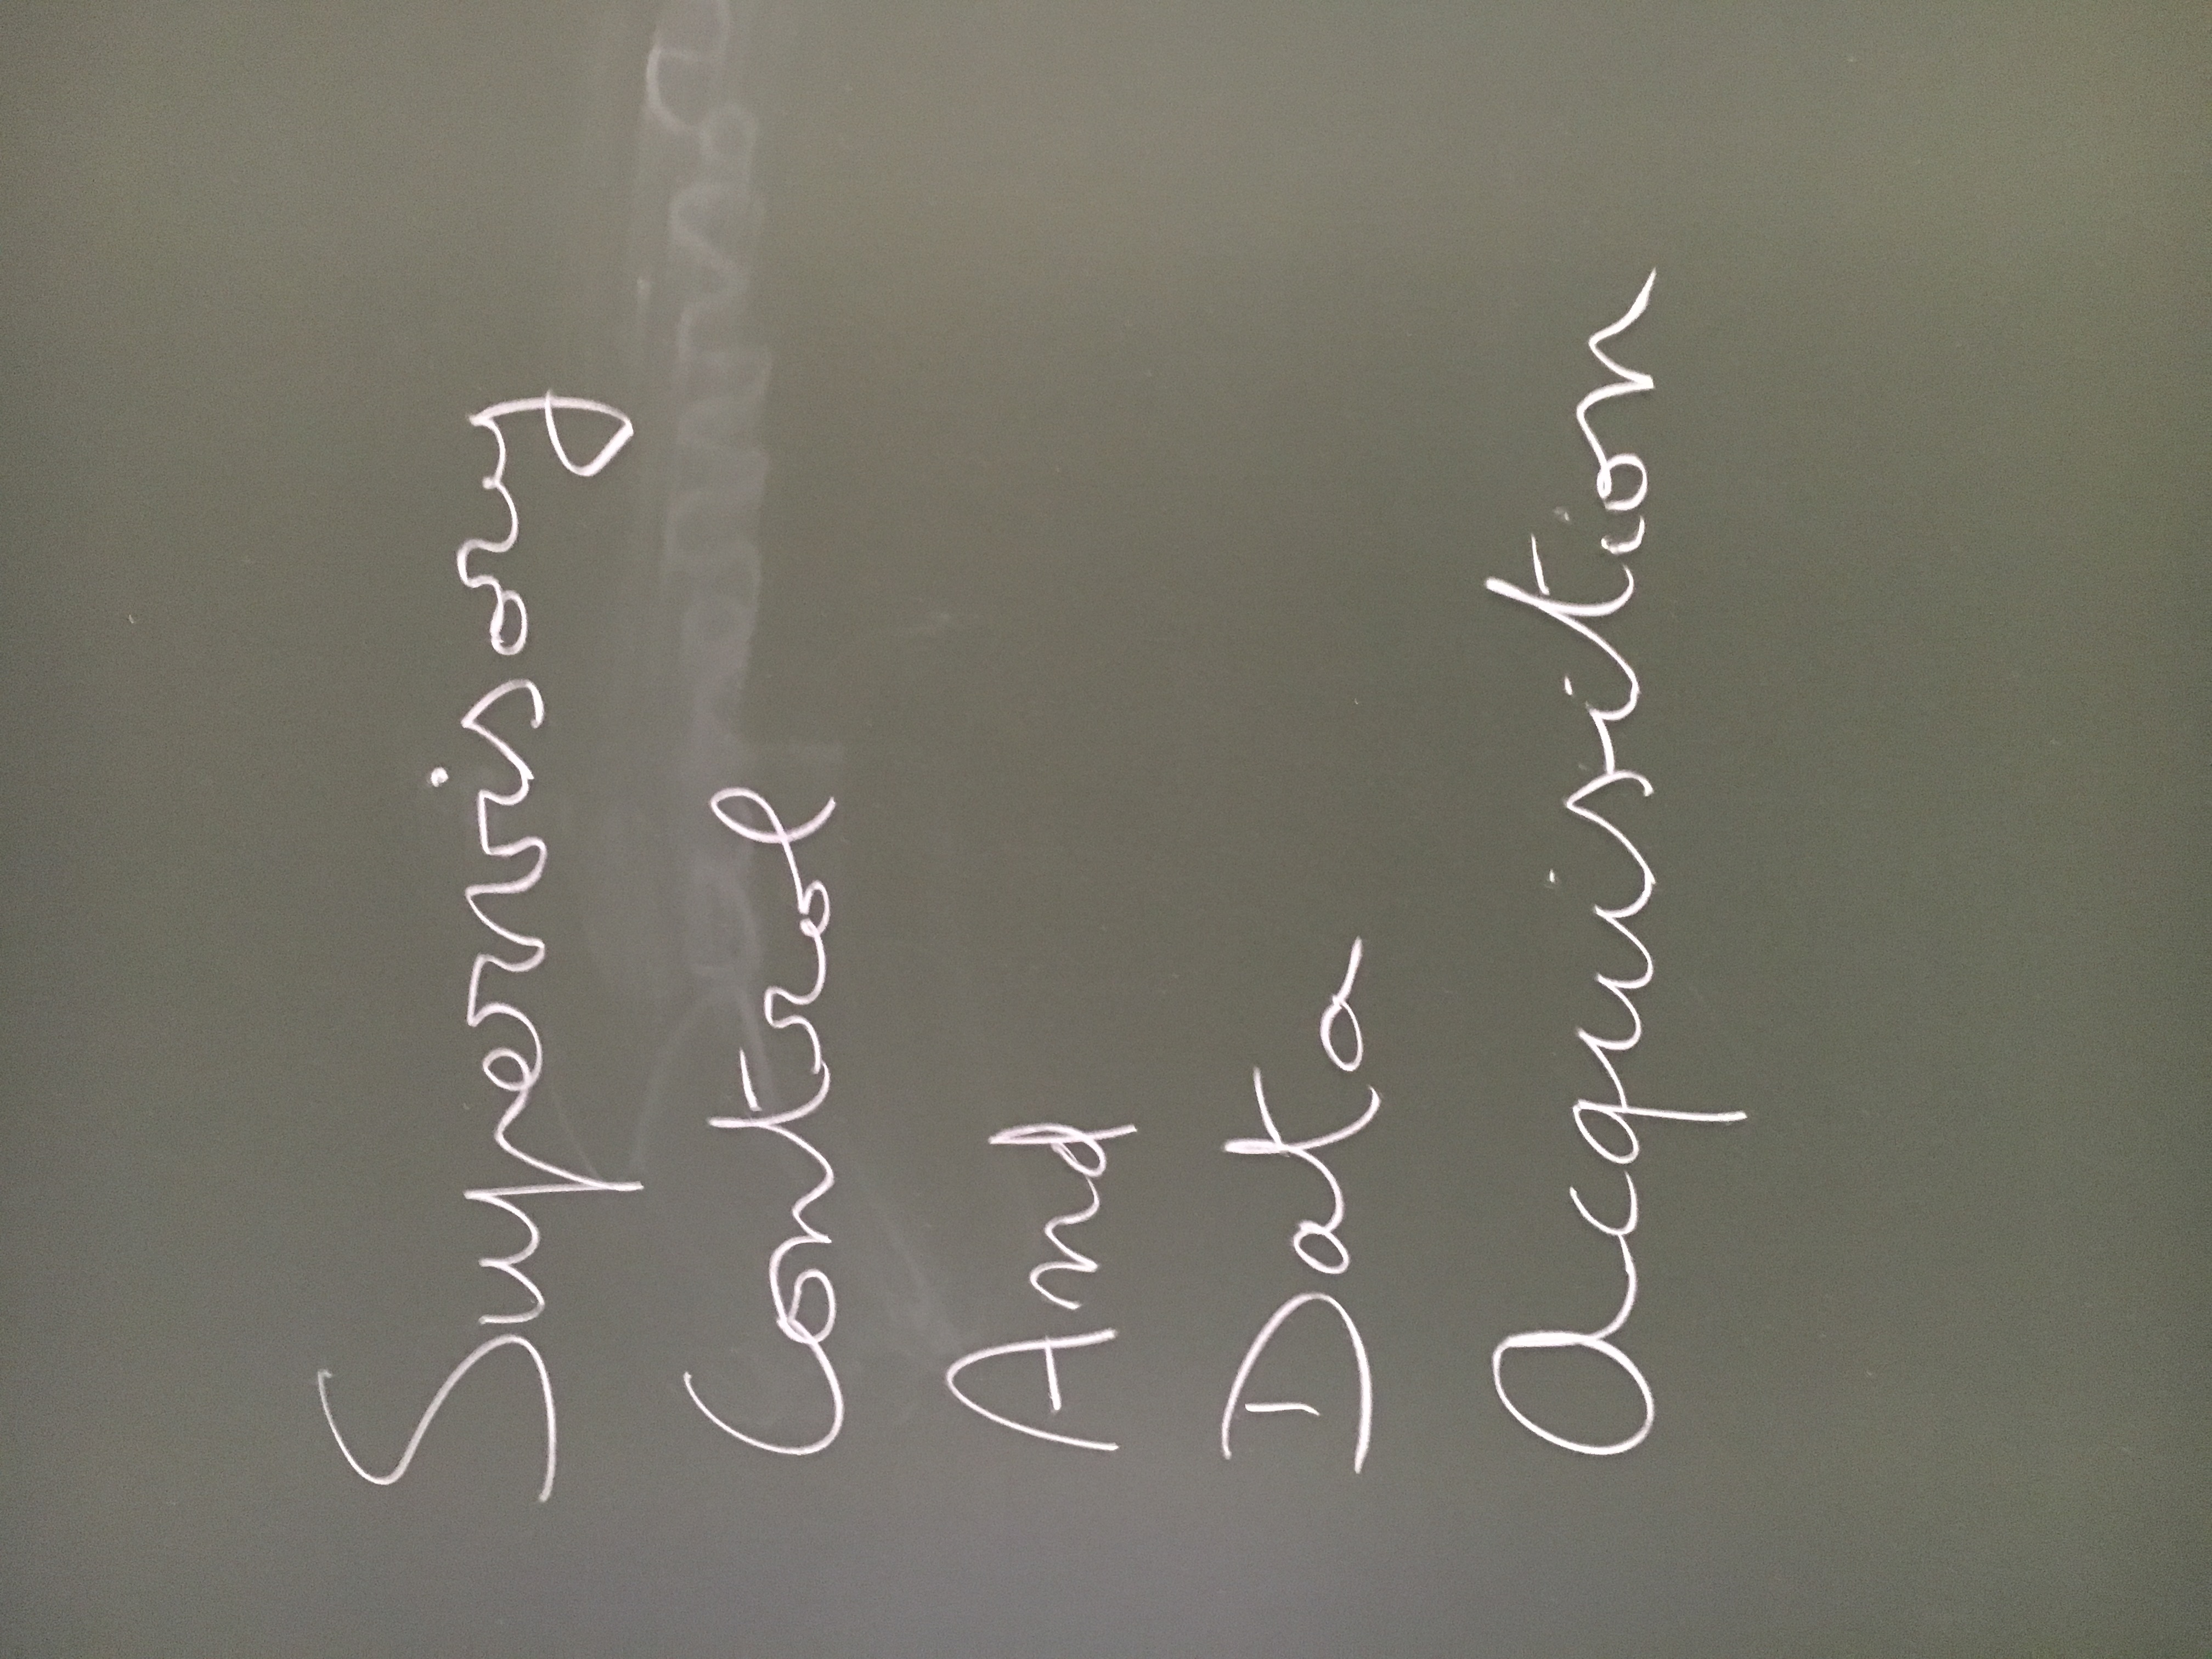 Supervisory
Control
And
Data
Acquisition